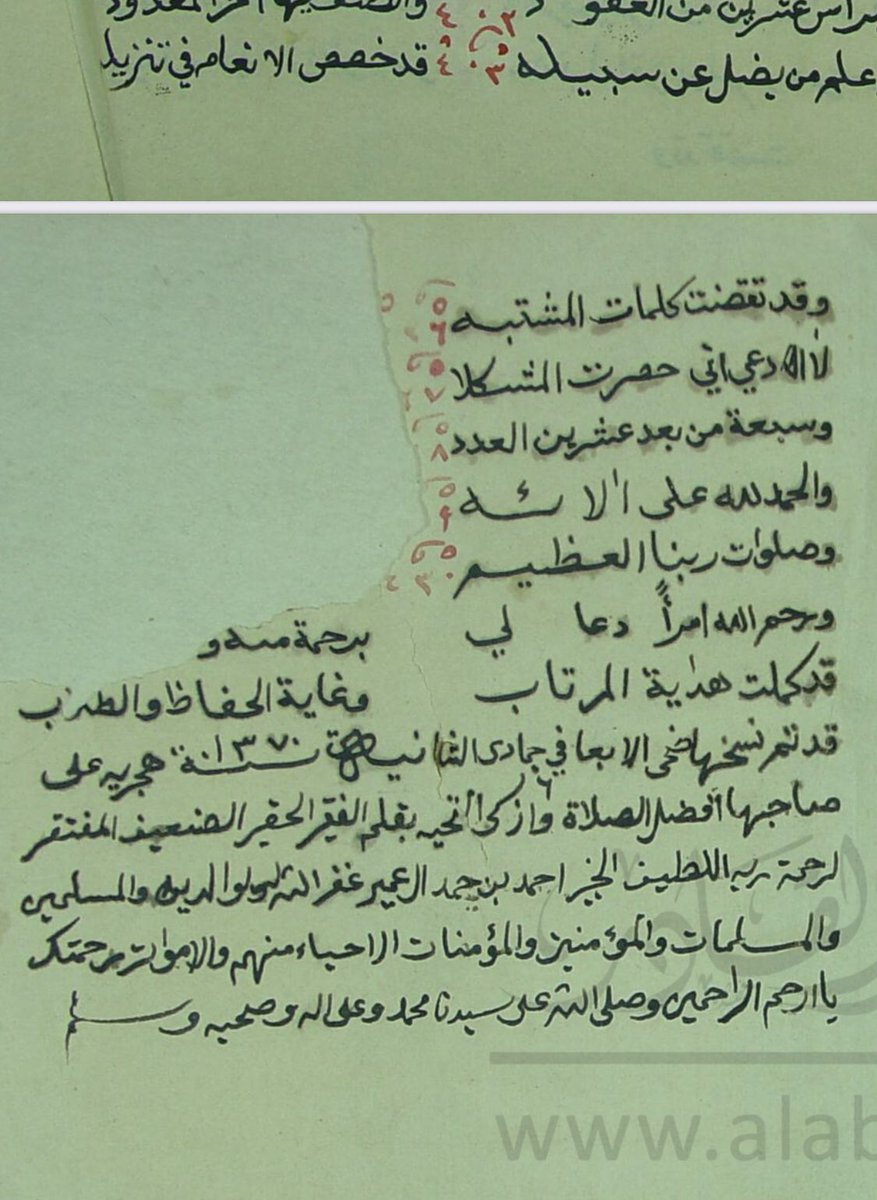 رأس عشرين من العقو
علم من يضل عن سبيله ٣٠٣ ٤٩ قد خصص الانعام في تنزيل
وقد تقضت كلمات المشتبه
لا ادعي اني حصرت المشكلا
وسبعة من بعد عشرين العدد
والحمد لله على الائه
وصلوات ربنا العظيم
ورحم الله امرأً دعا لي برحمة منه و
قد كملت هداية المرتاب وغاية الحفاظ والطلاب
قد تم نسخها ضحى الاربعا في جمادى الثانيه ٦ سنة ١٣٧٠ هجريه على
صاحبها أفضل الصلاة وازكى التحيه بقلم الفقير الحقير الضعيف المفتقر
لرحمة ربه اللطيف الخبير احمد بن حمد ال عمير غفر الله له ولوالديه والمسلمين
والمسلمات والمؤمنين والمؤمنات الاحياء منهم والاموات برحمتك
يا ارحم الراحمين وصلى الله على سيدنا محمد وعلى اله وصحبه وسلم
www.alab